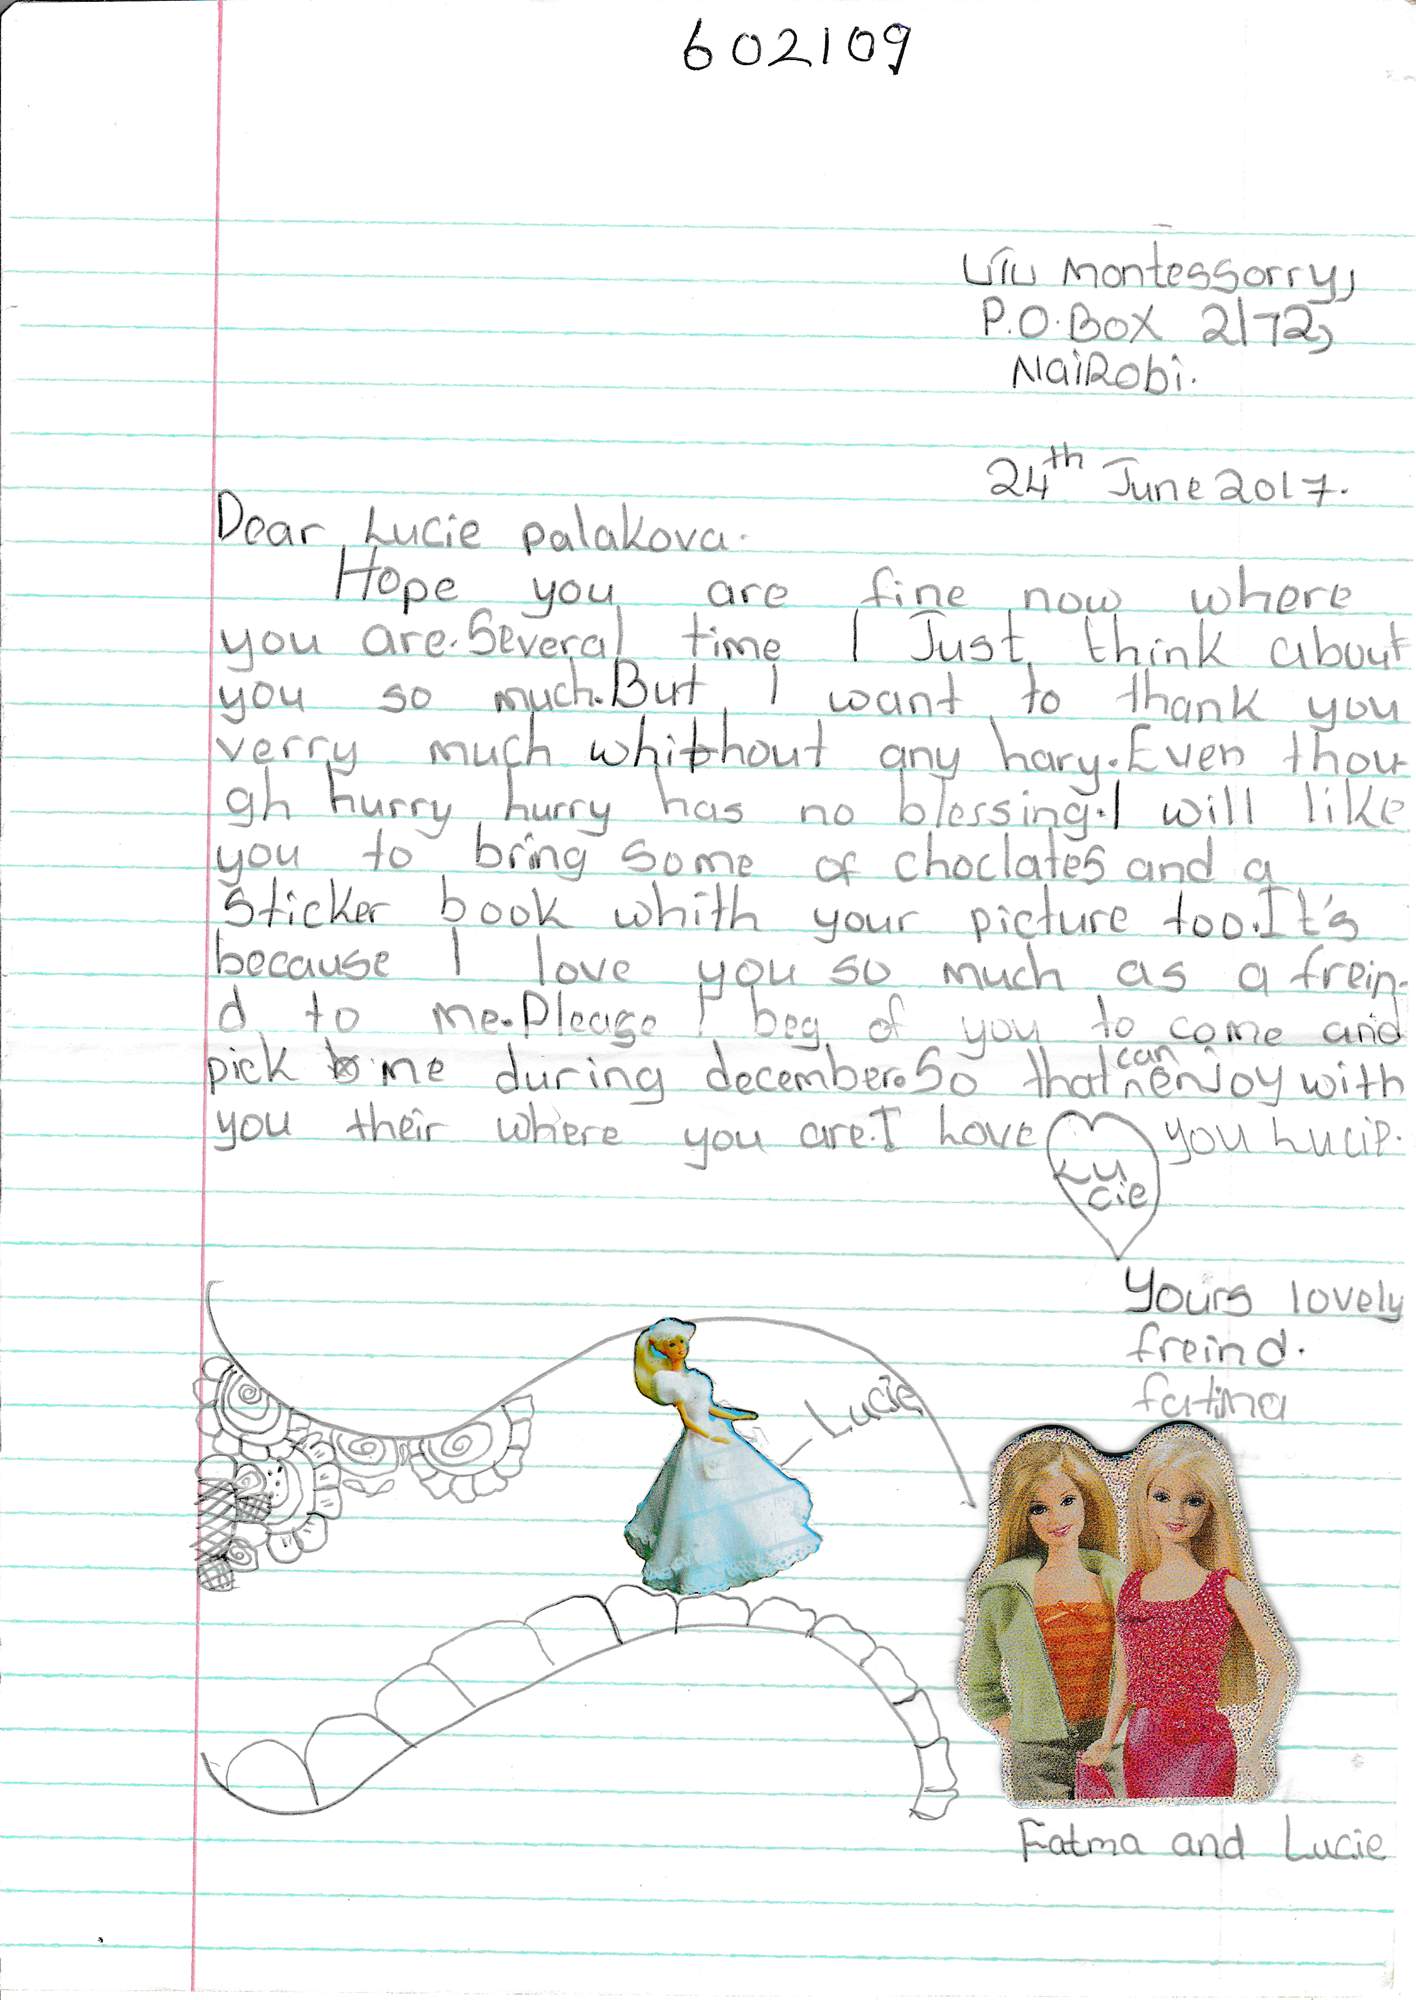 602109
Montessorry,
P.O.BOX 2172,
NaiRobi.
24th June 2017.
Dear Lucie palakova.
Hope you are fine now where
you are.Several time I Just think about
you so much.But I want to thank you
verry much whithout any hary.Even thou-
gh hurry hurry has no blessing.I will like
you to bring some of choclates and a
Sticker book whith your picture too.It's
because I love you so much as a frein-
d to me.Please I beg of you to come and
pick me during december.So that can enjoy with
you their where you are.I Love you Lucie.
Lu
cie
Yours lovely
freind.
fatima
Lucie
Fatma and Lucie